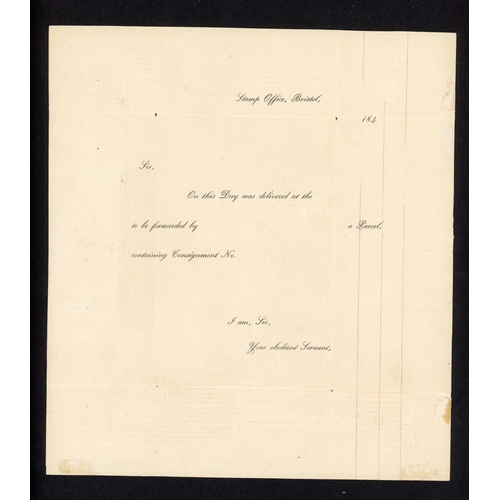 Stamp Office, Bristol,
184
Sir,
On this Day was delivered at the
to be forwarded by a Parcel,
containing Consignment No.
I am, Sir,
Your obedient Servant,